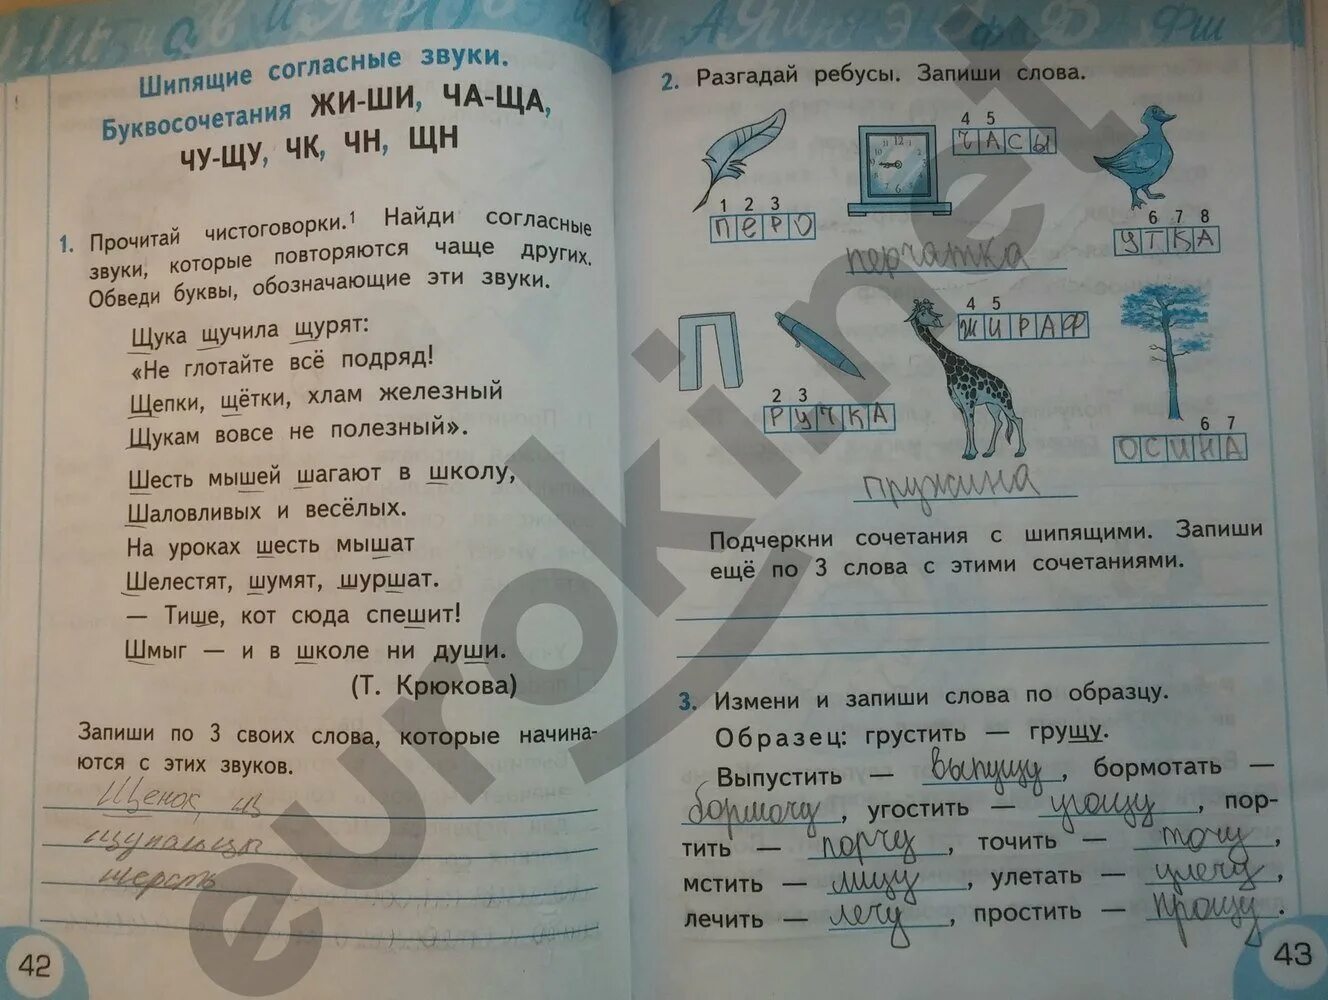 Шипящие согласные звуки.
Буквосочетания ЖИ-ШИ, ЧА-ЩА,
ЧУ-ЩУ, ЧК, ЧН, ЩН
1. Прочитай чистоговорки.¹ Найди согласные
звуки, которые повторяются чаще других.
Обведи буквы, обозначающие эти звуки.
Щука щучила щурят:
«Не глотайте всё подряд!
Щепки, щётки, хлам железный
Щукам вовсе не полезный».
Шесть мышей шагают в школу,
Шаловливых и весёлых.
На уроках шесть мышат
Шелестят, шумят, шуршат.
— Тише, кот сюда спешит!
Шмыг — и в школе ни души.
(Т. Крюкова)
Запиши по 3 своих слова, которые начина-
ются с этих звуков.
Щенок,
щупальцы
шерсть
42
2. Разгадай ребусы. Запиши слова.
4 5
ЧАСЫ
1 2 3
ПЕРО
6 7 8
УТКА
перчатка
П
4 5
ЖИРАФ
2 3
РУЧКА
6 7
ОСИНА
пружина
Подчеркни сочетания с шипящими. Запиши
ещё по 3 слова с этими сочетаниями.
3. Измени и запиши слова по образцу.
Образец: грустить — грущу.
Выпустить — выпущу, бормотать —
бормочу, угостить — угощу, пор-
тить — порчу, точить — точу,
мстить — мщу, улетать — улечу,
лечить — лечу, простить — прощу.
43
eurokinet